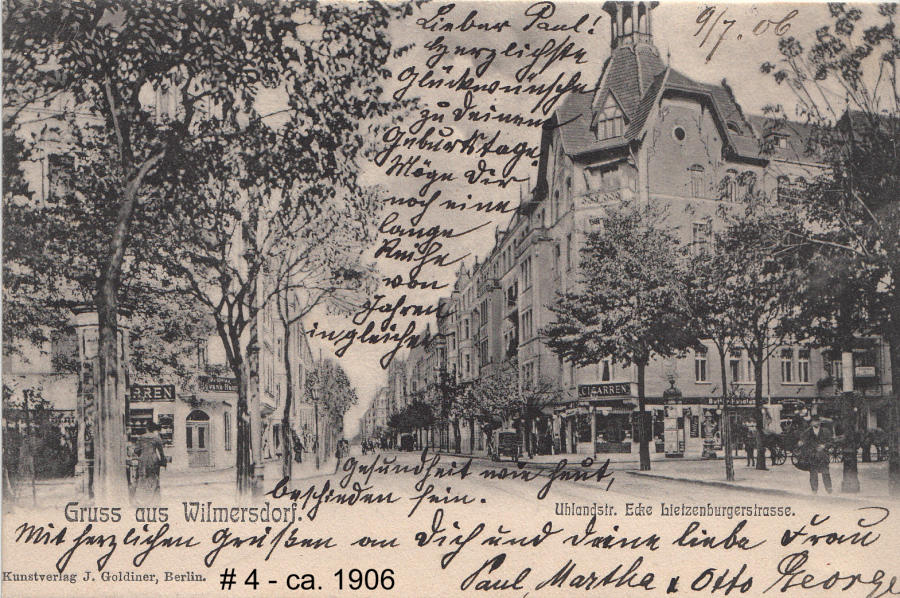 9/7. 06
Lieber Paul!
Herzlichste
Glückwünsche
zu Deinem
Geburtstage.
Möge Dir
noch eine
lange
Reihe
von
Jahren
in gleicher
Gesundheit wie heut,
beschieden sein.
RREN
CIGARREN
Gruss aus Wilmersdorf.
Uhlandstr. Ecke Lietzenburgerstrasse.
Mit herzlichen Grüßen an Dich und Deine liebe Frau
Paul, Martha & Otto George
Kunstverlag J. Goldiner, Berlin.
# 4 - ca. 1906